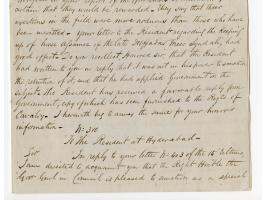 certain that they would be rewarded. they say that their
exertions in the field were more arduous than those who have
been invested. Your letter to the Resident regarding the keeping
up of those of the late Meer has
good effect. as you recollect. that the Resident
had written to you in reply that it was not in his power to sanction
the retention of it, and that he had applied Government on the
subject. the Resident has received a favourable reply from
Government, copy of which has been furnished to the Nights of
Cavalry. I herewith beg to annex the same for your honors
information — No: 310
To the Resident at Hyderabad —
Sir In reply to your letter No 403 of the 15th Ultimo,
I am directed to acquaint you that the Right Hon'ble the
Govr Genl in Council is pleased to sanction as a special